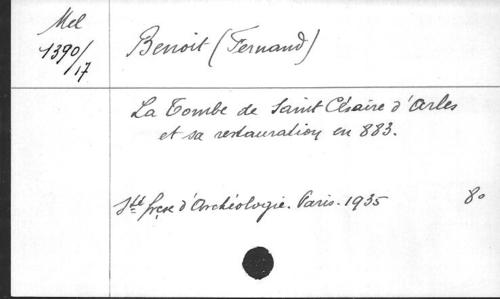 Mel
1390/17
Benoit (Fernand)
La Tombe de Saint Césaire d'Arles
et sa restauration en 883.
Sté frçse d'Archéologie. Paris. 1935 8°